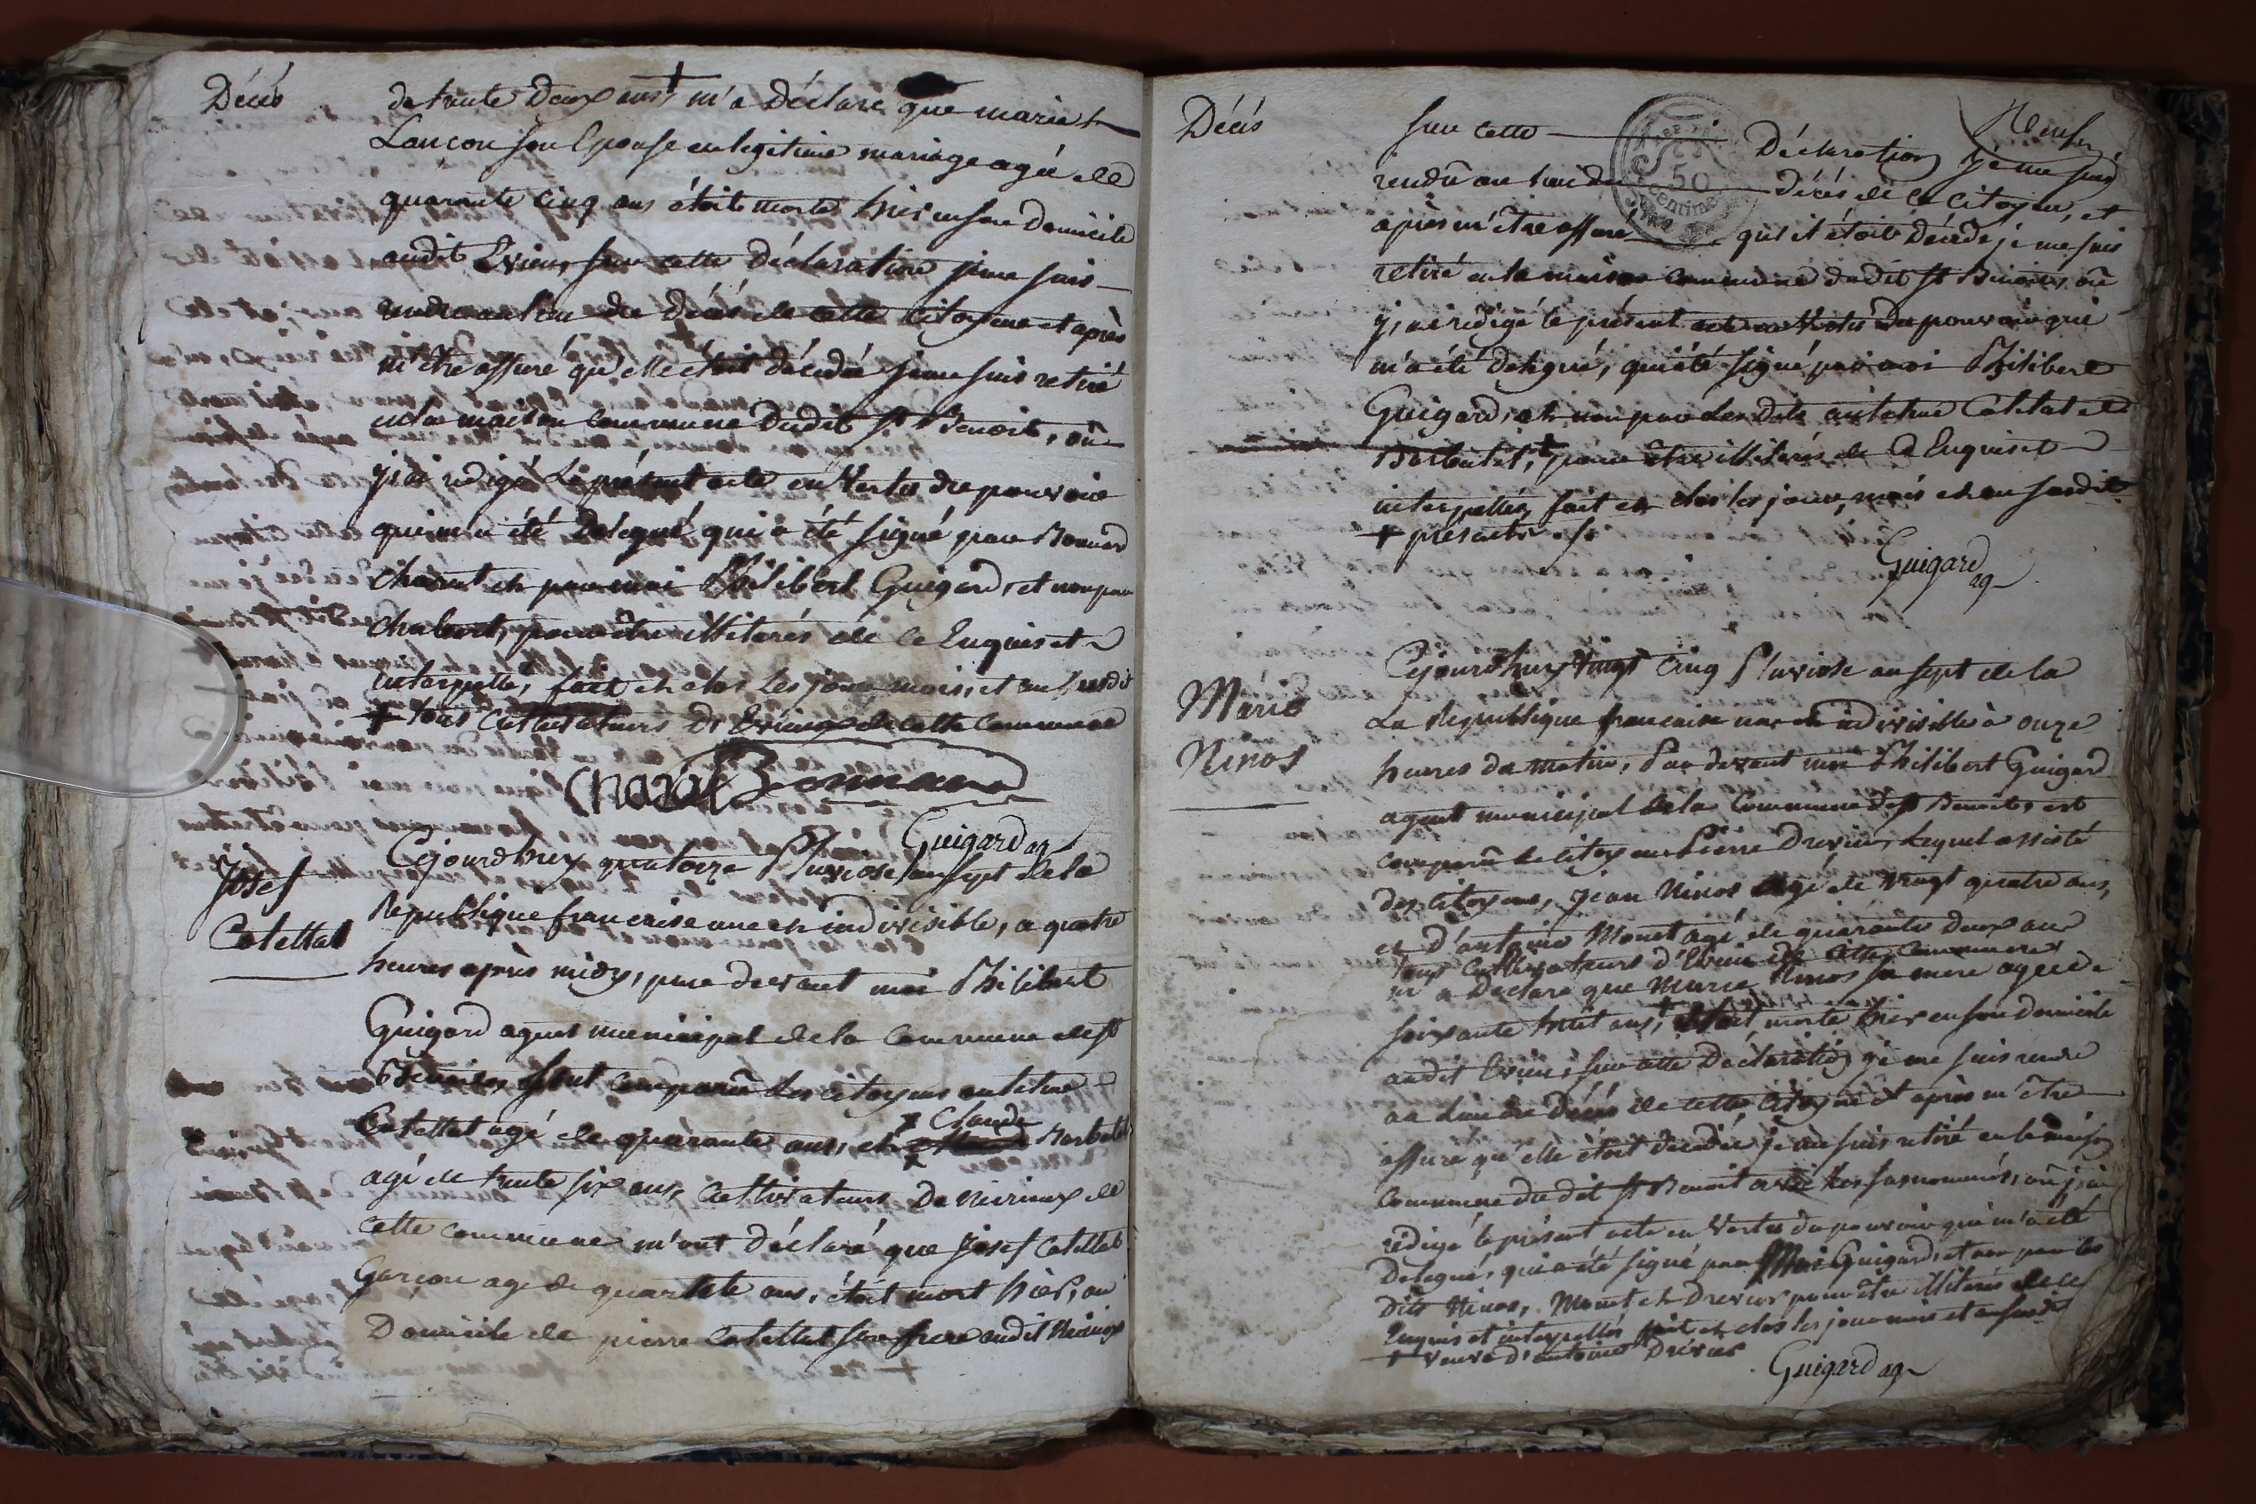 Décès
de trente Deux ans + m'a Déclaré que marie
Lancon son Epouse en legitime mariage agée de
quarante cinq ans étoit morte hier en son Domicile
audit Evieu, sur cette Déclaration je me suis
rendu au lieu du Décès de cette Citoyenne et après
m'être assuré qu'elle étoit décédée je me suis retiré
en la maison commune dudit St Benoit, où
j'ai redigé le présent acte en Vertu du pouvoir
qui m'a été Delegué qui a été signé par Bonnard
Charvet et par moi Philibert Guigard, et non par
Chabert, pour être illiterés de ce Enquis et
interpellé, fait et clos les jour mois, et an susdit
+ tous Cultivateurs D'Evieux de cette Commune
Charvet Bonnard
Guigard ag
Josef
Catettat
Cejourdhuy quatorze Pluviose an sept de la
Republique francaise une et indivisible, a quatre
heures après midy, par devant moi Philibert
Guigard agent municipal de la Commune de St
Benoit, sont comparû les citoyens antoine
Catettat agé de quarante ans, et Claude Barbotat
agé de trente six ans, Cultivateurs De nivieux de
cette commune m'ont Déclaré que Josef Catettat
Garçon agé de quarante ans, étoit mort hier, au
Domicile de pierre Catettat son frere audit Nivieux
Décès
Neuf
sur cette Déclaration je me suis
rendû au lieu du Décès de ce Citoyen, et
après m'être assuré qu'il étoit Décédé, je me suis
retiré en la maison commune dudit St Benoit, où
j'ai redigé le présent acte en Vertu du pouvoir qui
m'a été Delegué, qui a été signé par moi Philibert
Guigard, et non par les dits antoine Catettat et
Barbotat, + pour être illiterés de Ce Enquis et
interpellés, fait et clos les jour, mois et an susdit
+ presents
Guigard ag
50
Marie
Ninos
Cejourdhuy Vingt Cinq Pluviose an sept de la
La Republique francaise une et indivisible à onze
heures du matin, Par devant moi Philibert Guigard
agent municipal de la Commune de St Benoit, est
comparû le citoyen Pierre Drevier, lequel assisté
des citoyens, jean Ninos agé de Vingt quatre ans,
et D'antoine Monet agé de quarante Deux ans
tous Cultivateurs d'Evieu de Cette Commune
m'a Declaré que Marie Ninos sa mere agée de
soixante huit ans, + étoit morte hier en son domicile
audit Evieu, sur cette Declaration je me suis rendu
au Lieu du Décès de cette Citoyene et après m'être
assuré qu'elle étoit decédée je me suis retiré en la maison
Commune du dit St Benoit avec les susnommés, où j'ai
redigé le présent acte en Vertu du pouvoir qui m'a été
Delegué, qui a été signé par Moi Guigard, et non par les
dits Ninos, Monet et Drevier pour être illiterés de Ce
Enquis et interpellés fait et clos les jour mois et an susdit
+ veuve d'antoine Drevier
Guigard ag